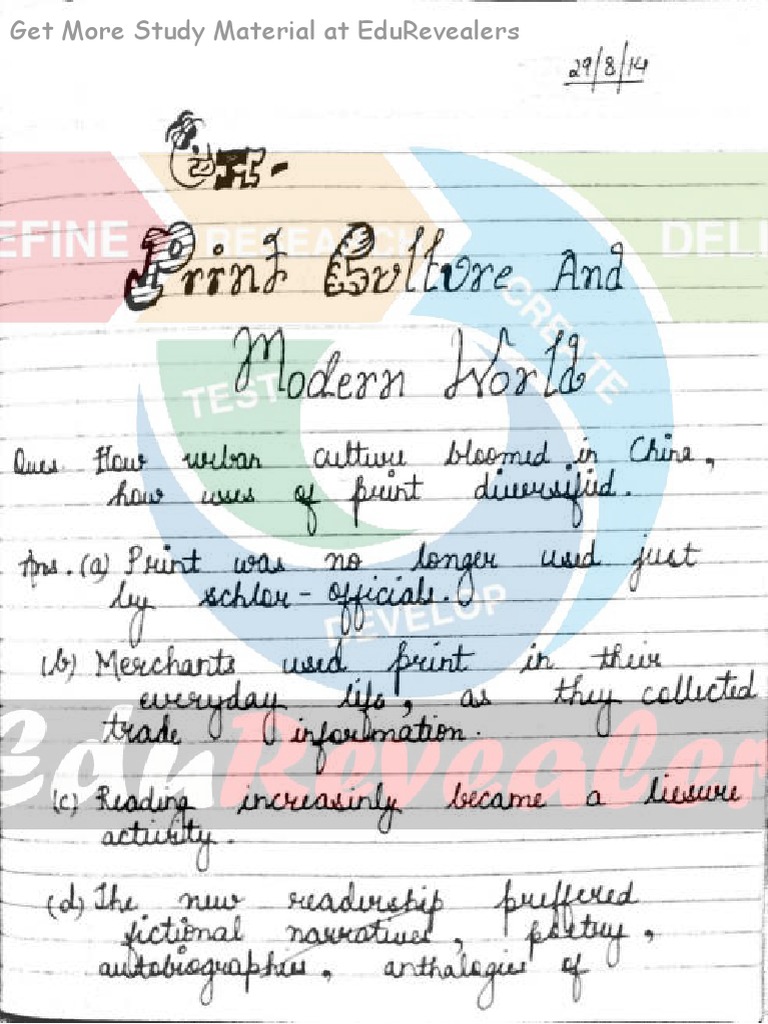 Get More Study Material at EduRevealers
29/8/14
Print Culture And
Modern World
EFINE
RESEARCH
DELI
CREATE
TEST
DEVELOP
EduRevealer
Ques How urban culture bloomed in China,
how uses of print diversified.
Ans. (a) Print was no longer used just
by schlor - officials.
(b) Merchants used print in their
everyday life, as they collected
trade information.
(c) Reading increasinly became a liesure
activity.
(d) The new readership preffered
fictional narratives, poetry,
autobiographies, anthalogies of